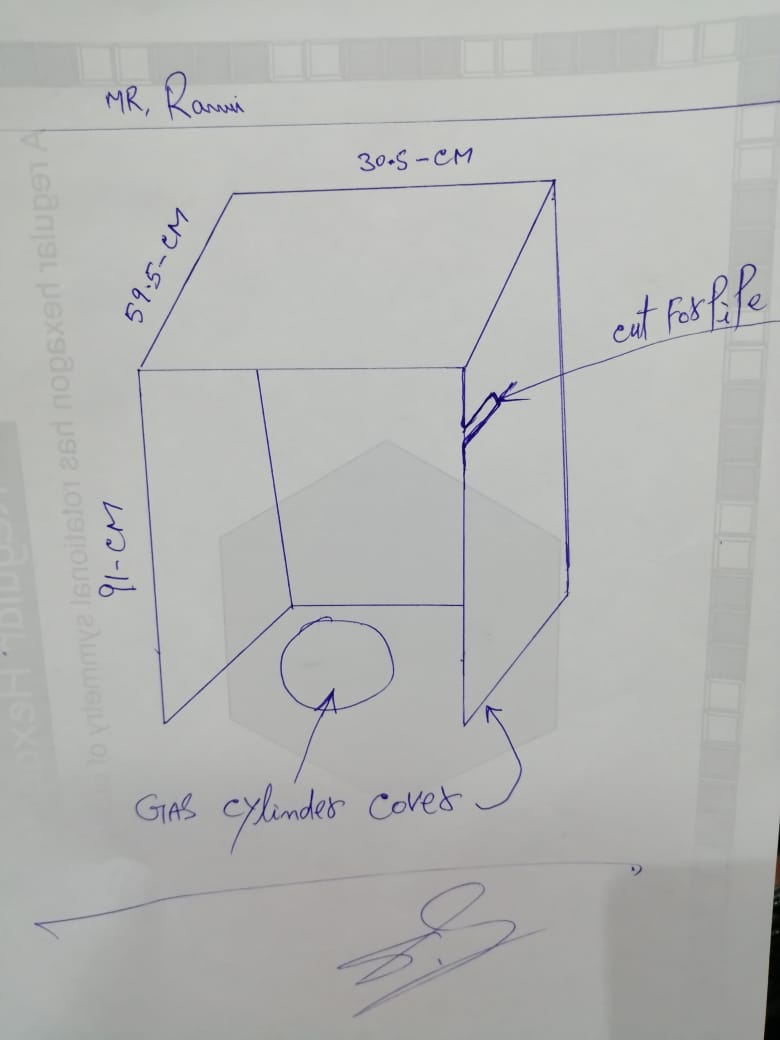 MR, Rami
30.5-CM
59.5-CM
cut For Pipe
91-CM
GAS cylinder cover
A regular hexagon has rotational symmetry of
Regular Hexa